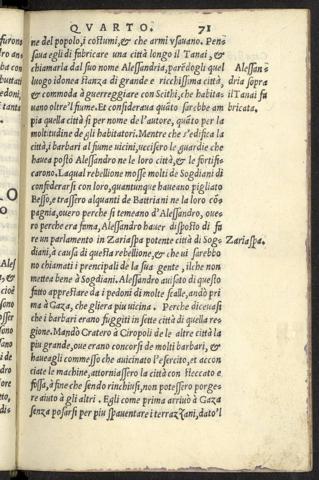 QVARTO. 71
ne del popolo, i costumi, & che armi vsauano. Pen
saua egli di fabricare una città longo il Tanai, &
chiamarla dal suo nome Alessandria, parēdogli quel
luogo idonea stanza di grande e ricchissima città,
& commoda à guerreggiare con Scithi, che habita-
uano oltre'l fiume. Et considerava quāto sarebbe am
pia quella città si per nome de l'autore, quāto per la
moltitudine de gli habitatori. Mentre che s'edifica la
città, i barbari al fiume uicini, vccisero le guardie che
hauea posto Alessandro ne le loro città, & le fortifi
carono. Laqual rebellione mosse molti de Sogdiani di
confiderarsi con loro, quantunque haueano pigliato
Besso, e trassero alquanti de Battriani ne la loro cō
pagnia, ouero perche si temeano d'Alessandro, oue
ro perche era fama, Alessandro hauer disposto di fa
re un parlamento in Zariaspa potente città di Sog-
diani, à causa di questa rebellione, & che ui sarebbo
no chiamati i prencipali de la sua gente, ilche non
mettea bene à Sogdiani. Alessandro auisato di questo
fatto apprestare da i pedoni di molte scalle, andò pri
ma à Gaza, che gliera piu uicina. Perche diceuasi
che i barbari erano fuggiti in sette città di quella re
gione. Mandò Cratero à Ciropoli de le altre città la
piu grande, oue erano concorsi de molti barbari, &
haueagli commesso che auicinato l'esercito, et accon
ciate le machine, attorniassero la città con steccato e
fossa, à fine che sendo rinchiusi, non potessero porge-
re aiuto à gli altri. Egli come prima arriuò à Gaza
senza posarsi per piu spauentare i terrazzani, dato'l
Alessan
dria sopra
il Tanai fa
bricata.
Zariaspa.